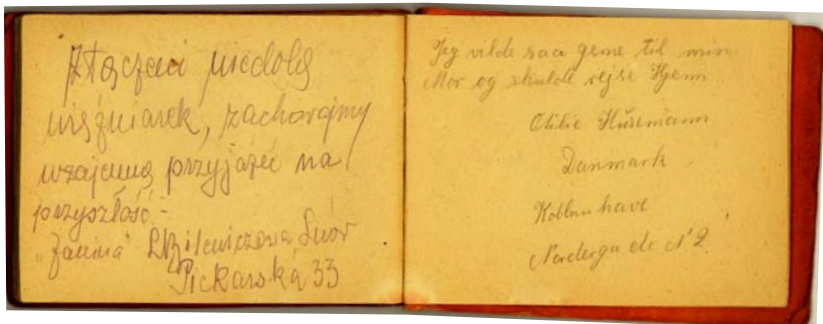 Złączeni niedolą
więźniarek, zachowajmy
wzajemną przyjaźń na
przyszłość -
"Janina" Lwów
Piekarska 33
Jeg vilde saa gerne til min
Mor og skulde rejse Hjem
Otilie Hüsemann
Danmark
Kobbenhave
Nordergade N 2